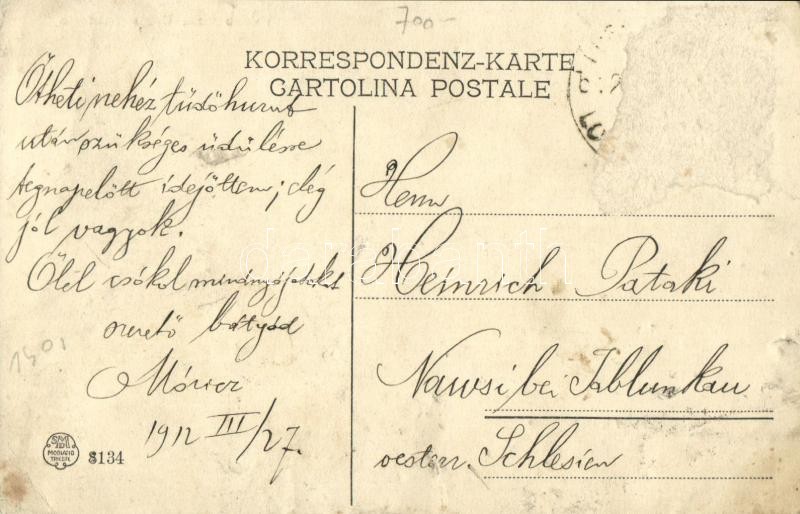 700-
KORRESPONDENZ-KARTE
CARTOLINA POSTALE
Öt heti nehéz tüdőhurut
után szükséges üdülésre
tegnapelőtt idejöttem; elég
jól vagyok.
Ölel csókol mindnyájatokat
szerető bátyád
Móricz
1912 III/27.
1901
8134
Herrn
Heinrich Pataki
Nawsi bei Jablunkau
oesterr. Schlesien